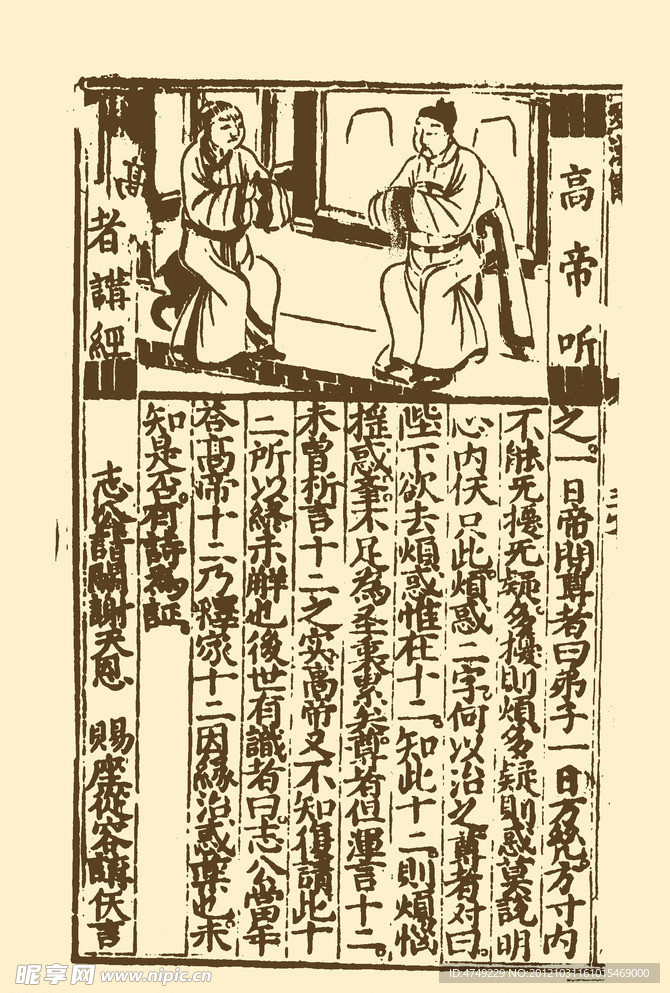 高帝听
高者講經
之。一日帝問尊者曰弟子一日万凢。方寸内
不能无擾无疑。多擾則煩多疑則惑莫說明
心内仸只此煩惑二字。何以治之。尊者对曰。
陛下欲去煩惑惟在十二。知此十二。則煩惱
摇惑。不足為圣衷累矣。尊者但渾言十二。
未曾析言十二之实。高帝又不知復請此十
二所以終未觧也後世有識者曰。志公當年
荅高帝十二乃釋家十二因縁治惑藥也。未
知是否。有詩為証。
志公詣闕謝天恩 賜座從容講仸言
昵享网 www.nipic.cn
ID:4749229 NO:20121031161035469000